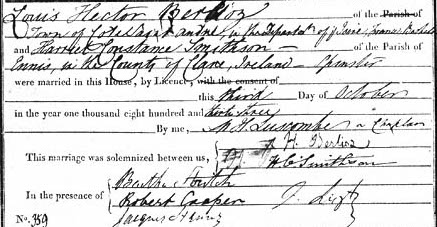 Louis Hector Berlioz of the Parish of
Town of Cote Saint André, in the Departmt of Isère, France, Bachelor
and Harriet Constance Smithson of the Parish of
Ennis, in the County of Clare, Ireland - Spinster
were married in this House, by Licence, with the consent of
this third Day of October
in the year one thousand eight hundred and thirty three
By me, M H Luscombe a Chaplain
This marriage was solemnized between us, H. Berlioz
H C Smithson
In the presence of Bertha Stritch
Robert Cooper F. Liszt
Jacques Henry
No. 359